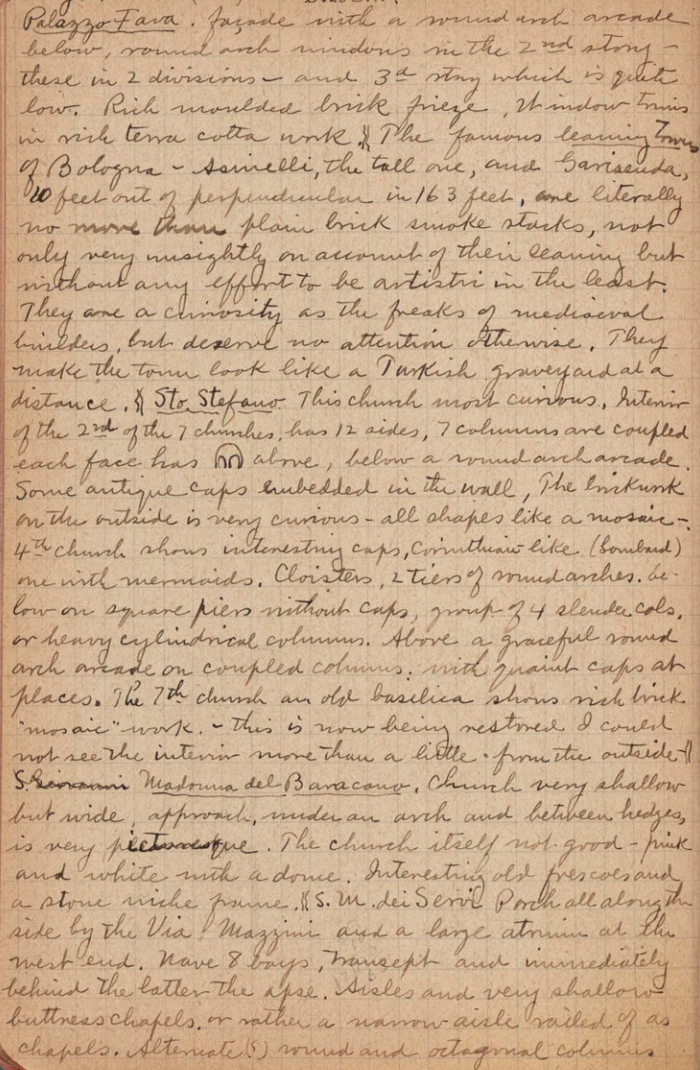 Palazzo Fava. façade with a round arch arcade
below, round arch windows in the 2nd story –
these in 2 divisions – and 3d story which is quite
low. Rich moulded brick frieze, Window trims
in rich terra cotta work. § The famous leaning Towers
of Bologna – Asinelli, the tall one, and Garisenda,
10 feet out of perpendicular in 163 feet, are literally
no more than plain brick smoke stacks, not
only very unsightly on account of their leaning but
without any effort to be artistic in the least.
They are a curiosity as the freaks of mediaeval
builders, but deserve no attention otherwise. They
make the town look like a Turkish graveyard at a
distance. § Sto. Stefano. This church most curious, Interior
of the 2nd of the 7 churches, has 12 sides, 7 columns are coupled
each face has above, below a round arch arcade.
Some antique caps embedded in the wall, The brickwork
on the outside is very curious – all shapes like a mosaic –.
4th church shows interesting caps, Corinthian like (Lombard)
one with mermaids. Cloisters, 2 tiers of round arches. be-
low on square piers without caps, group of 4 slender cols.
or heavy cylindrical columns. Above a graceful round
arch arcade on coupled columns; with quaint caps at
places. The 7th church an old basilica shows rich brick
"mosaic" work. – this is now being restored I could
not see the interior more than a little. from the outside – §
S. Giovanni Madonna del Baracano. Church very shallow
but wide, approach, under an arch and between hedges,
is very picturesque. The church itself not good – pink
and white with a dome. Interesting old frescoes and
a stone niche frame. § S. M. dei Servi Porch all along the
side by the Via Mazzini and a large atrium at the
west end. Nave 8 bays, Transept and immediately
behind the latter the apse. Aisles and very shallow
buttress chapels. or rather a narrow aisle railed of as
chapels. Alternate (5) round and octagonal columns